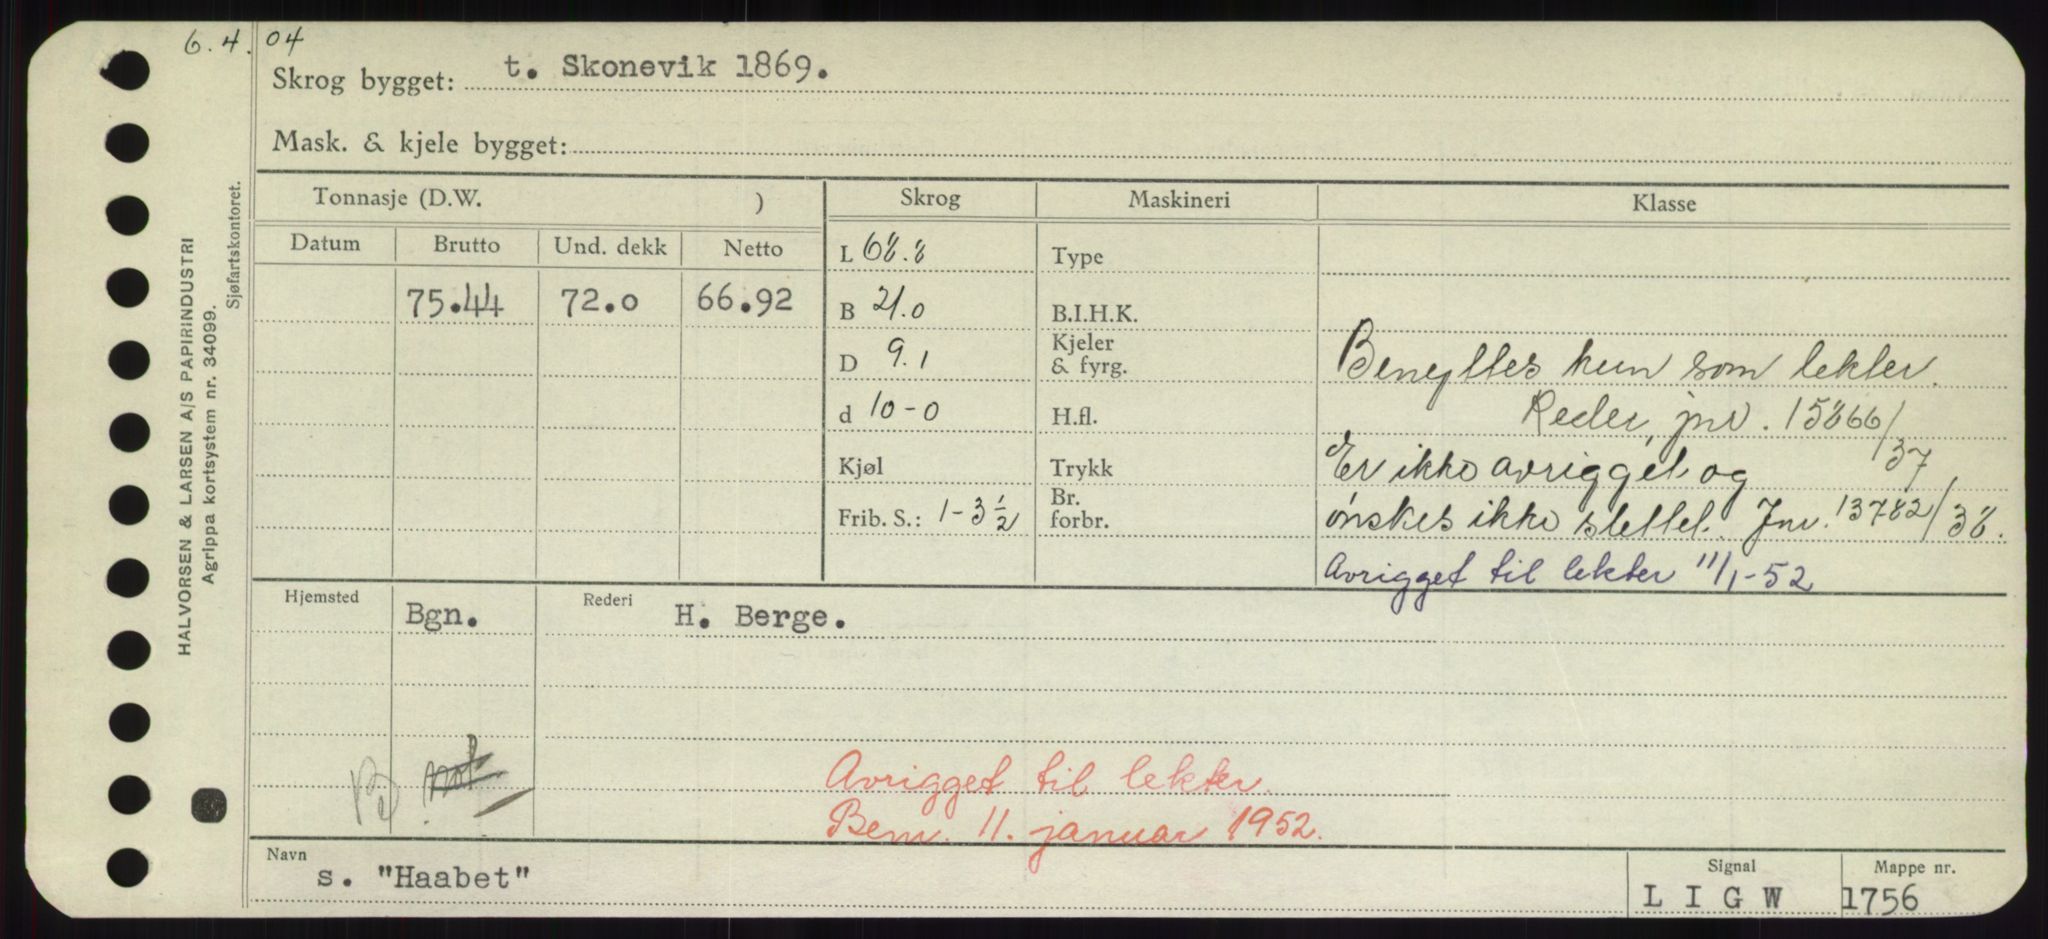 6.4.04
Skrog bygget: t. Skonevik 1869.
Mask. & kjele bygget:
Tonnasje (D.W. ) Skrog Maskineri Klasse
Datum Brutto Und. dekk Netto L 68.8 Type
75.44 72.0 66.92 B 21.0 B.I.H.K.
D 9.1 Kjeler & fyrg. Benyttes kun som lekter.
d 10-0 H.fl. Reder, jnr. 15866/37
Kjøl Trykk Er ikke avrigget og
Frib. S.: 1-3½ Br. forbr. ønskes ikke slettet. Jnr. 13782/38.
Avrigget til lekter 11/1-52
Hjemsted Bgn. Rederi H. Berge.
Avrigget til lekter.
Bem. 11. januar 1952.
Navn s. "Haabet" Signal LIGW Mappe nr. 1756
HALVORSEN & LARSEN A/S PAPIRINDUSTRI
Agrippa kortsystem nr. 34099.
Sjøfartskontoret.